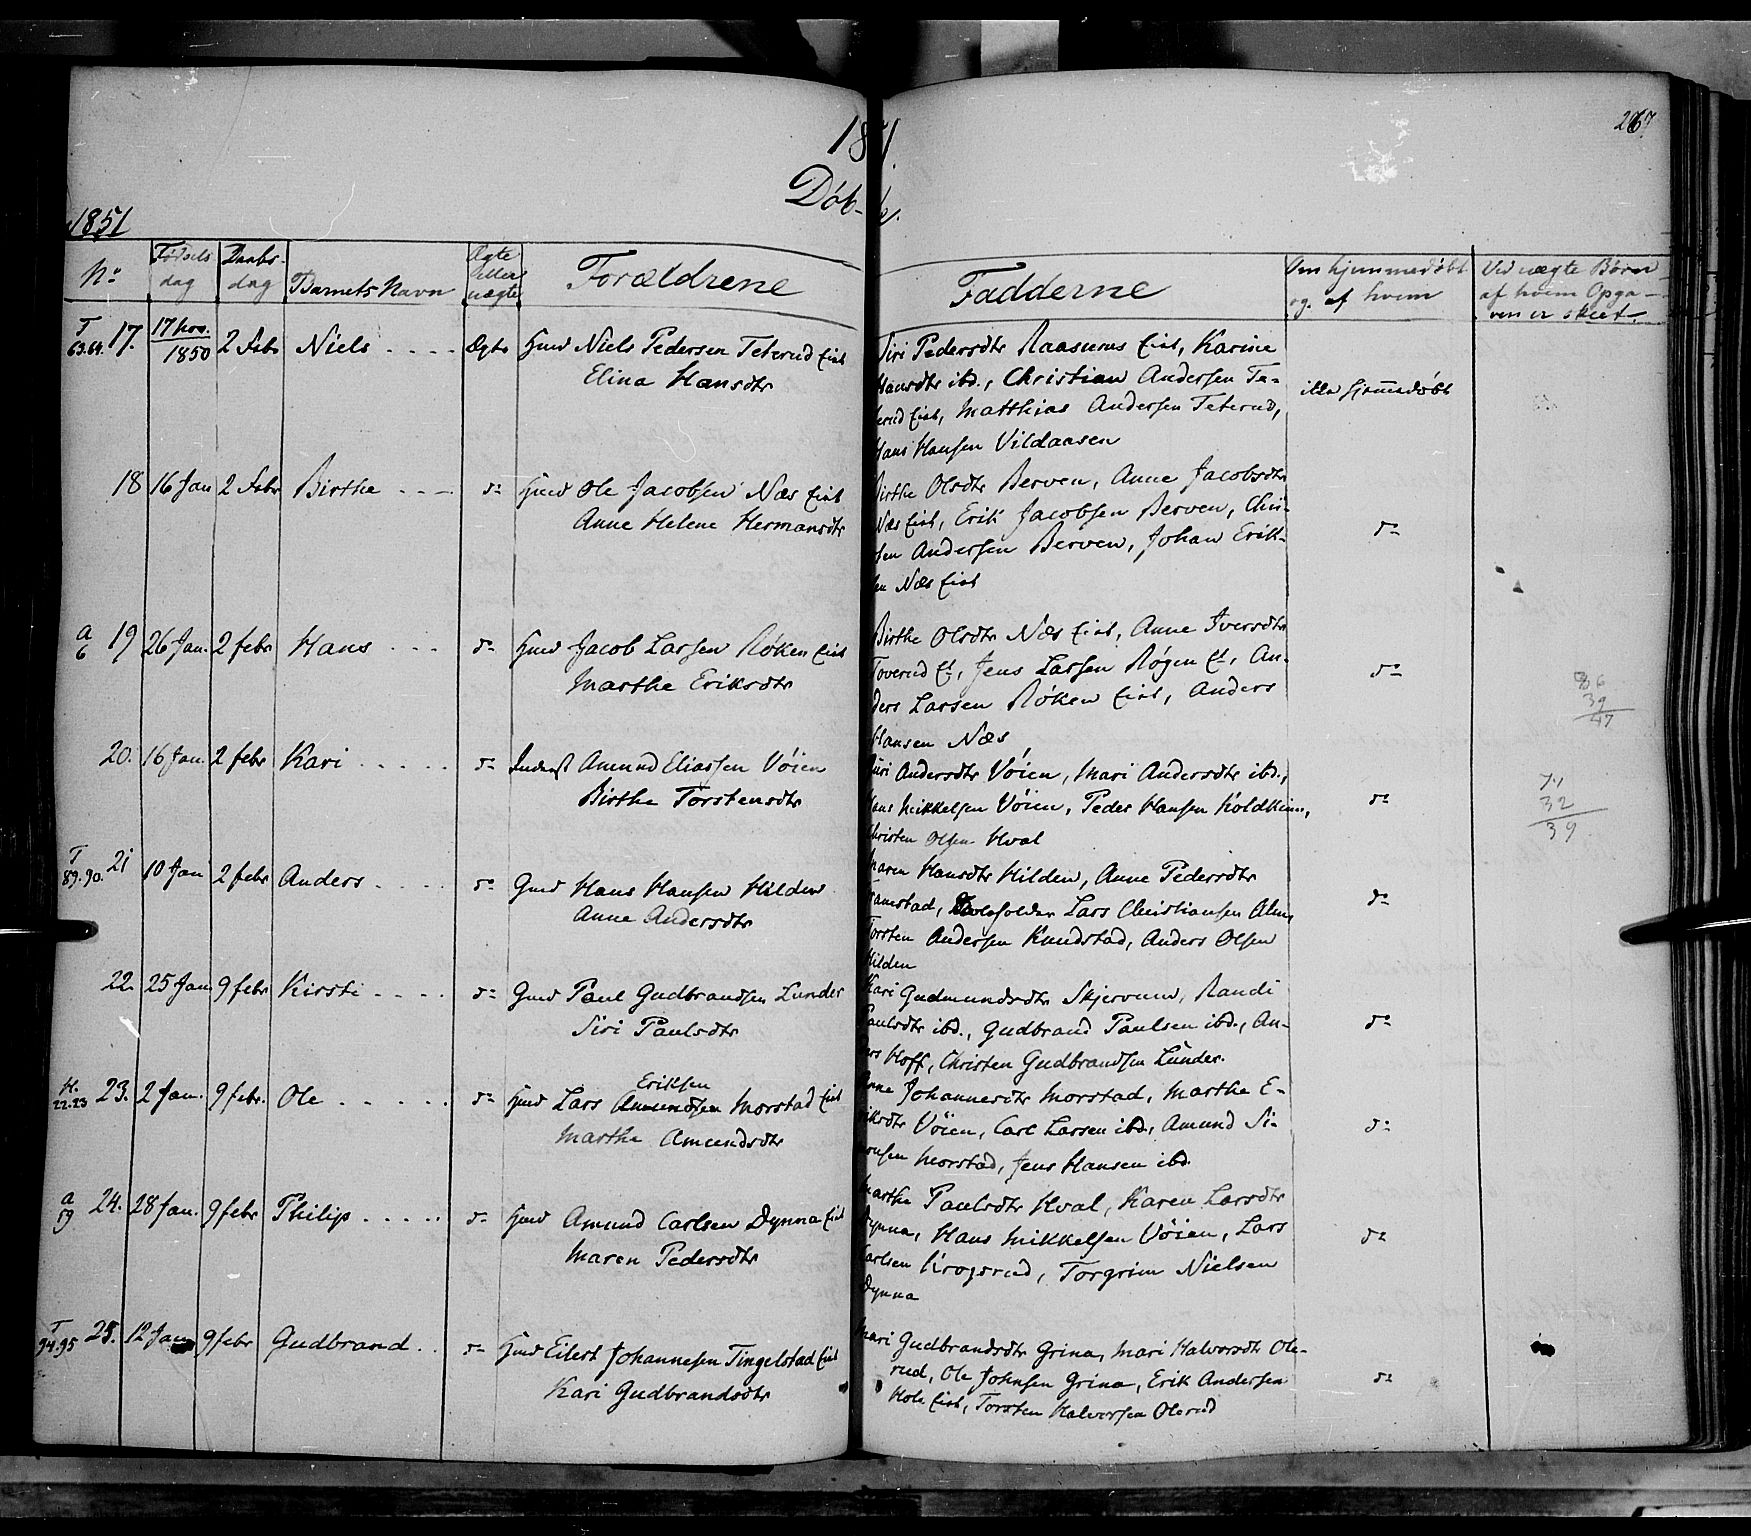 267
1851.
Døbte.
1851
No
Fødsels dag
Daabs- dag
Barnets Navn
Ægte eller uægte
Forældrene
Fadderne
Om hjemmedøbt og af hvem
Ved uægte Børn af hvem Opga- ven er skeet.
T 63.64. 17. 17 Nov. 1850 2 Febr Niels Ægte Gmd Niels Pedersen Teterud Eiet
Elina Hansdtr
Siri Pedersdtr Raasums Eiet, Karine
Hansdtr ibd., Christian Andersen Te-
terud Eiet, Matthias Andersen Teterud,
Hans Hansen Vildaasen
ikke hjemmedøbt
18 16 Jan 2 Febr Birthe do Hmd Ole Jacobsen Næs Eiet
Anne Helene Hermansdtr
Birthe Olsdtr Berven, Anne Jacobsdtr
Næs Eiet, Erik Jacobsen Berven, Chri-
sten Andersen Berven, Johan Erik-
sen Næs Eiet
do
a 6 19 26 Jan. 2 febr Hans do Hmd Jacob Larsen Røken Eiet
Marthe Eriksdtr
Birthe Olsdtr Næs Eiet, Anne Iversdtr
Toverud Et, Jens Larsen Røgen Et, An-
ders Larsen Røken Eiet, Anders
Hansen Næs
do
86
39
47
20. 16 Jan. 2 febr Kari do Inderst Amund Eliassen Vøien
Birthe Torstensdtr
Guri Andersdtr Vøien, Mari Andersdtr ibd.,
Hans Mikkelsen Vøien, Peder Hansen Koldkinn,
Christen Olsen Hval
do
71
32
39
T 89.90. 21 10 Jan 2 febr Anders do Gmd Hans Hansen Hilden
Anne Andersdtr
Maren Hansdtr Hilden, Anne Pedersdtr
Framstad, Lars Christiansen Alm,
Torsten Andersen Knudstad, Anders Olsen
Hilden
do
22. 25 Jan 9 febr Kirsti do Gmd Paul Gudbrandsen Lunder
Siri Paulsdtr
Kari Gudmundsdtr Skjervum, Randi
Paulsdtr ibd., Gudbrand Paulsen ibd., An-
ders Hoff, Christen Gudbrandsen Lunder.
do
H. 22.23 23. 2 Jan. 9 febr. Ole do Hmd Lars Amundsen Eriksen Morstad Eiet
Marthe Amundsdtr
Anne Johannesdtr Morstad, Marthe E-
riksdtr Vøien, Carl Larsen ibd., Amund Si-
monsen Morstad, Jens Hansen ibd.
do
a 19 24. 28 Jan. 9 febr Philip do Hmd Amund Carlsen Dynna Eiet
Maren Pedersdtr
Marthe Paulsdtr Hval, Karen Larsdtr
Dynna, Hans Mikkelsen Vøien, Lars
Carlsen Krogsrud, Torgrim Nielsen
Dynna
do
T 94.95 25. 12 Jan 9 febr Gudbrand do Hmd Eilert Johannesen Tingelstad Eiet
Kari Gudbrandsdtr
Mari Gudbrandsdtr Grina, Mari Halvorsdtr Ole-
rud, Ole Johnsen Grina, Erik Andersen
Hole Eiet, Torsten Halvorsen Olerud
do